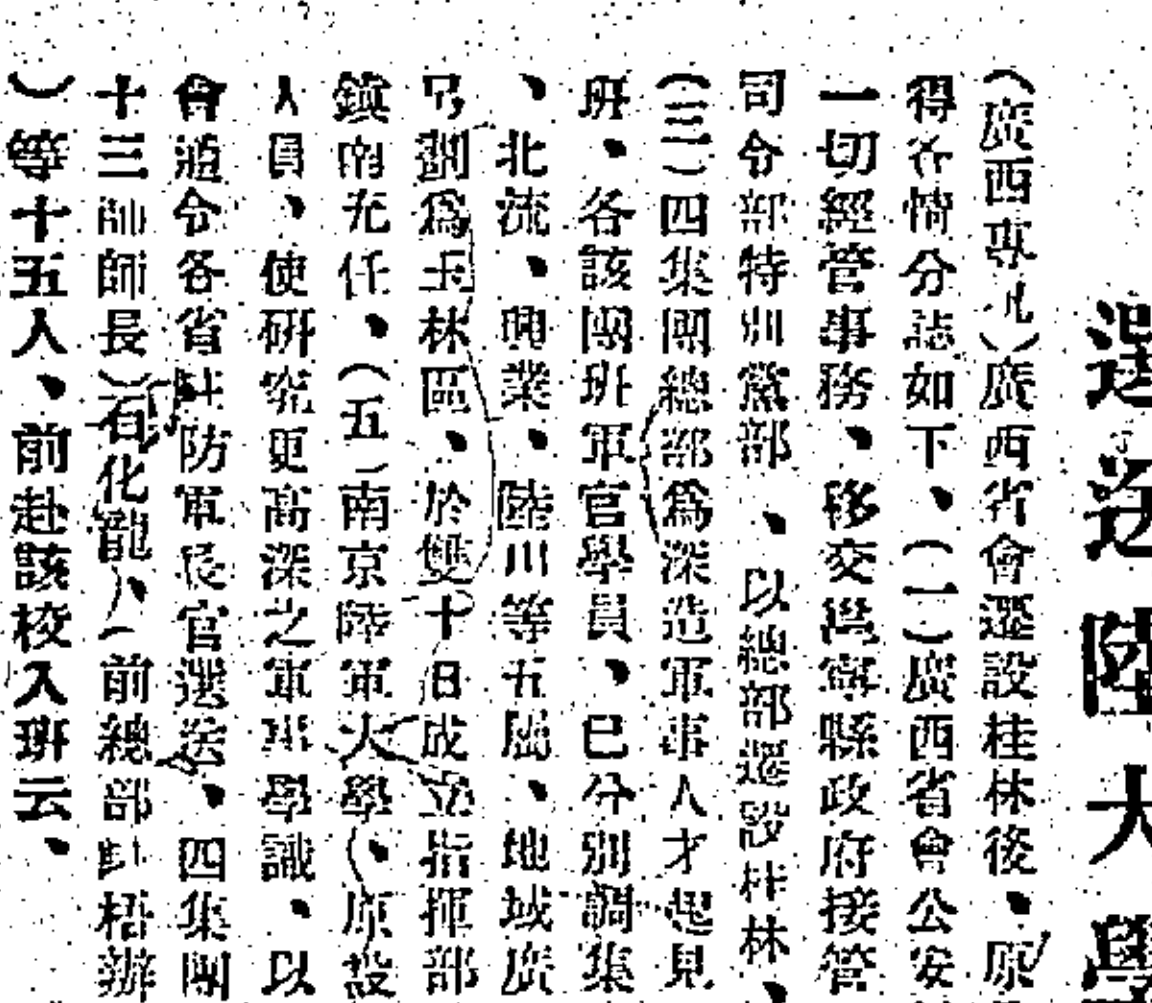 選送陸大學
（廣西專訊）廣西省會遷設桂林後、原
得各情分誌如下、（一）廣西省會公安
一切經管事務、移交邕寧縣政府接管
司令部特別黨部、以總部遷設桂林、
（三）四集團總部爲深造軍事人才起見
班、各該團班軍官學員、已分別調集
、北流、興業、陸川等五屬、地域廣
另劃爲玉林區、於雙十日成立指揮部
鎮南充任、（五）南京陸軍大學、原設
人員、使研究更高深之軍事學識、以
會通令各省駐防軍長官選送、四集團
十三師師長）石化龍、（前總部駐梧辦
）等十五人、前赴該校入班云、